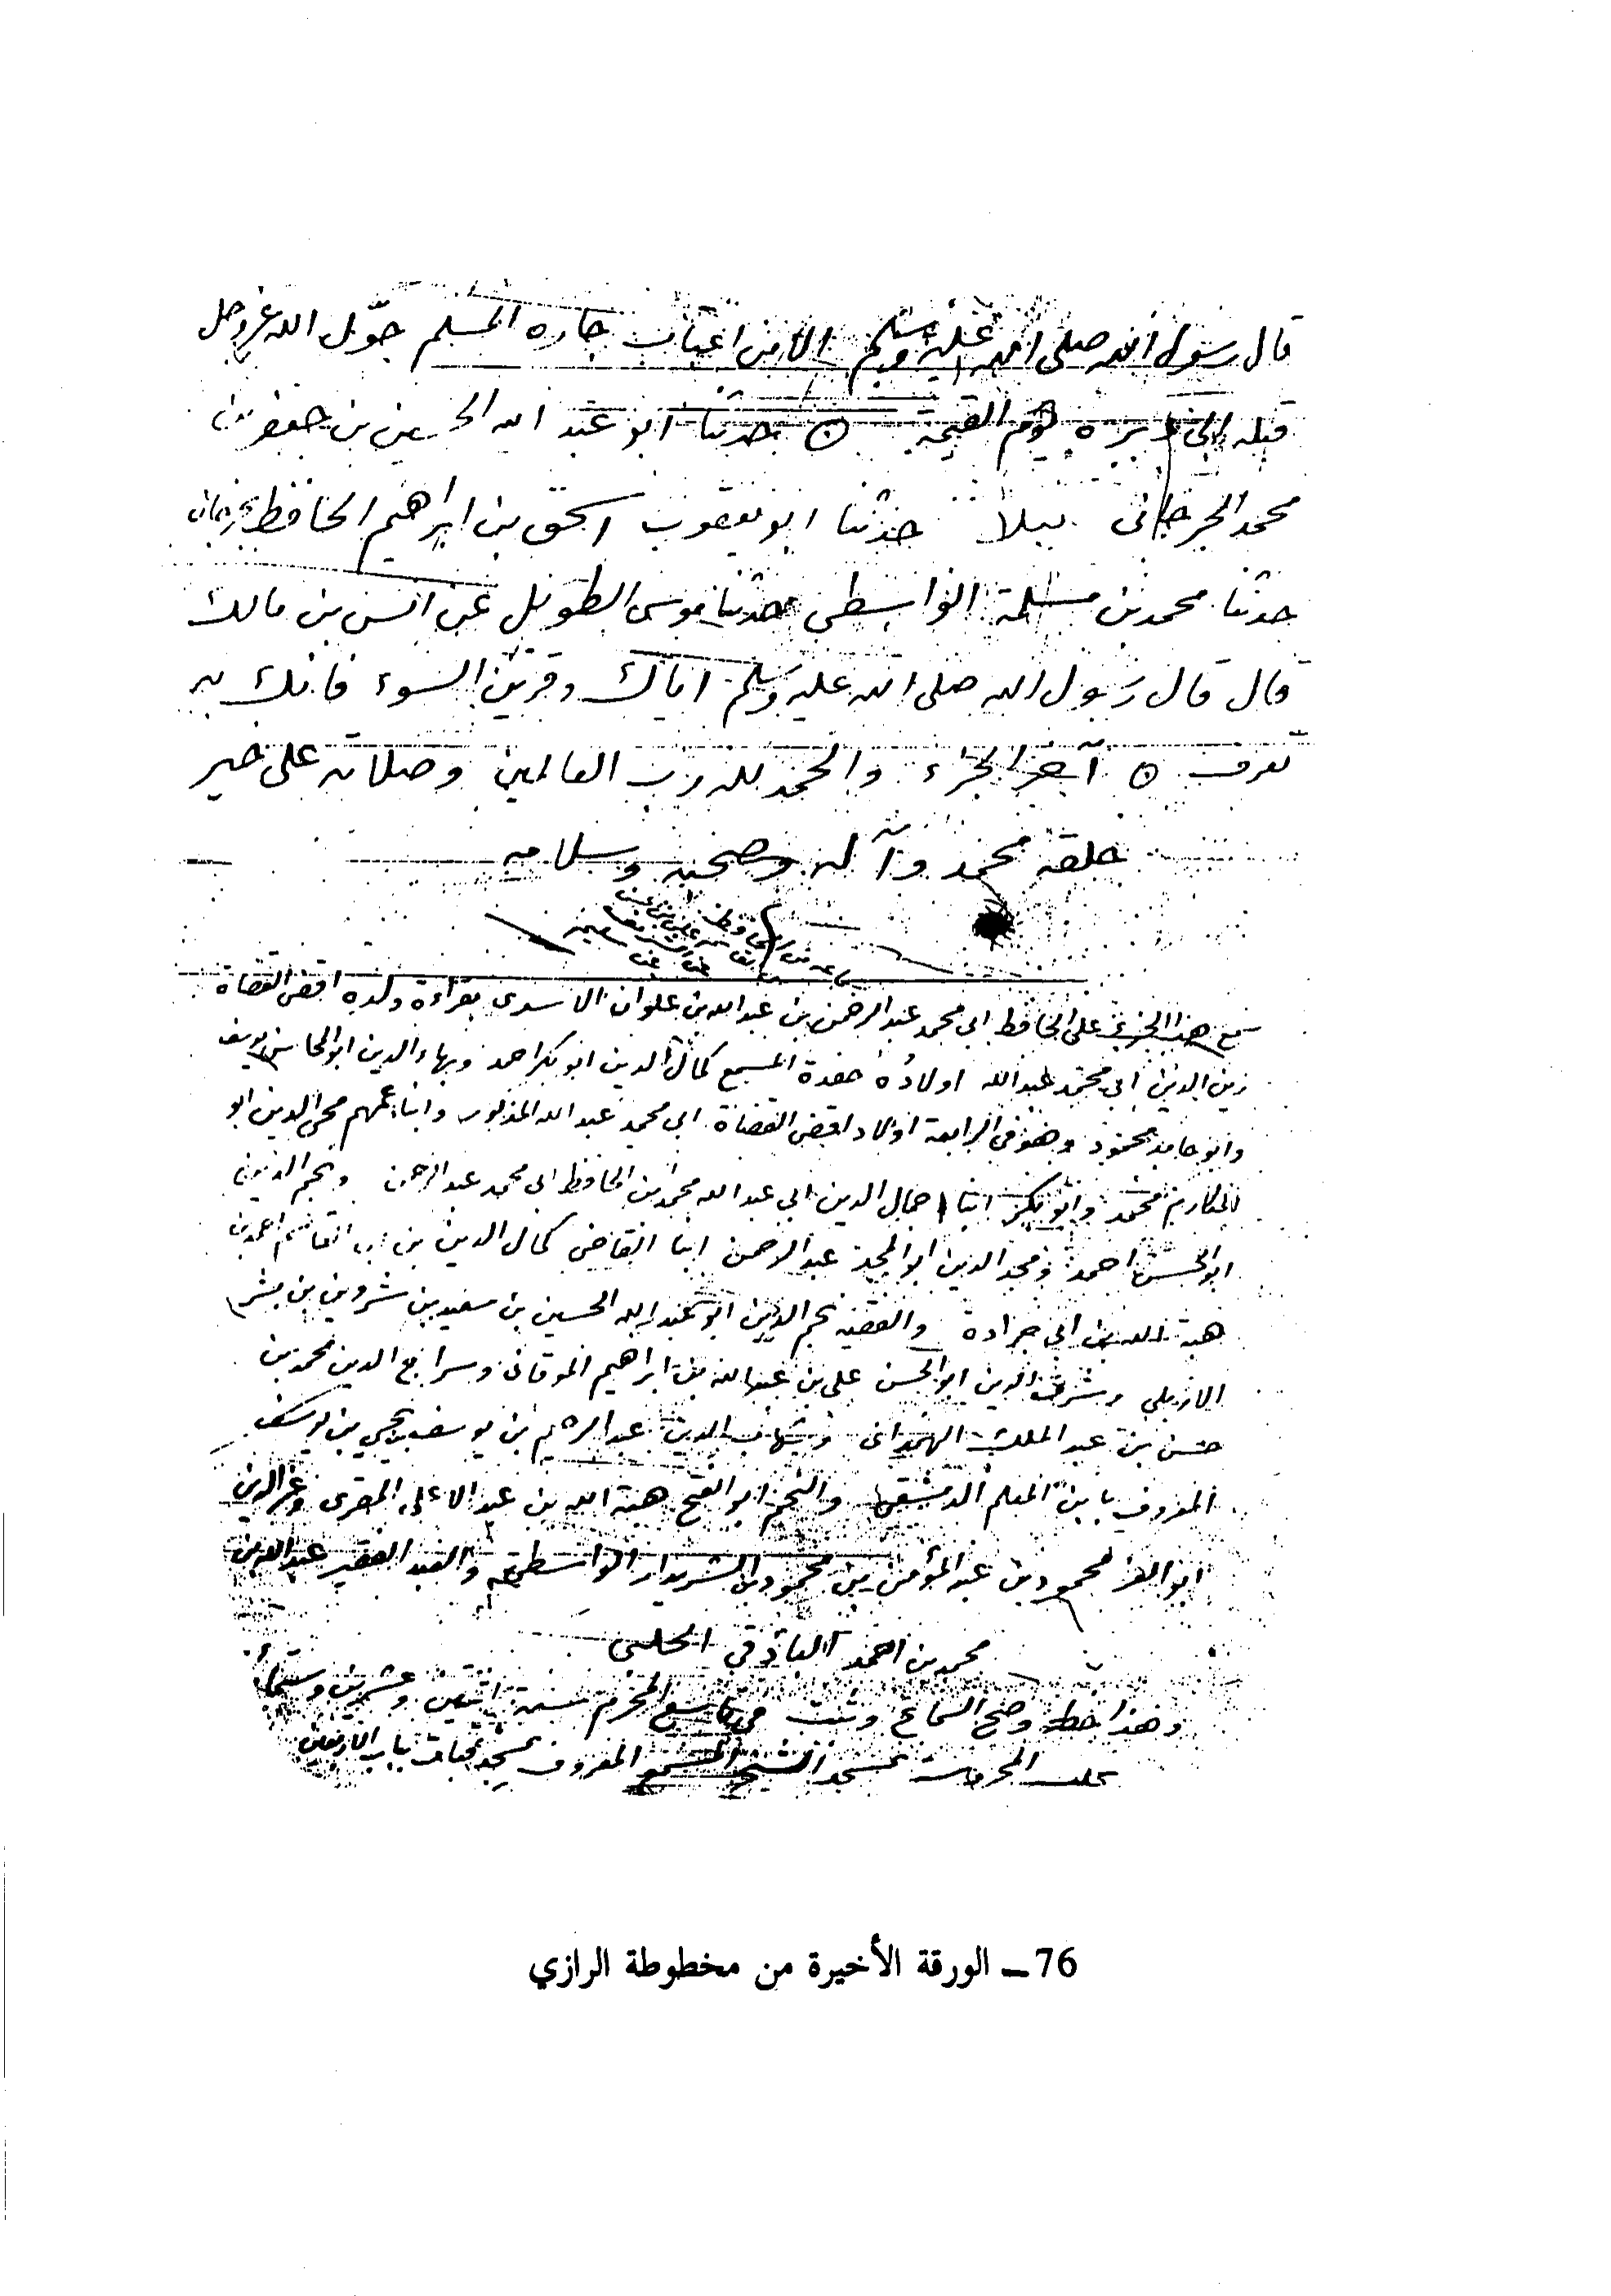 قال رسول الله صلى الله عليه وسلم الا من اغتاب جاره المسلم حوّل الله عز وجل
قبله الى دبره يوم القيمة ۞ حدثنا ابو عبد الله الحسين بن جعفر بن
محمد الجرجاني حدثنا ابو يعقوب اسحق بن ابراهيم الحافظ
حدثنا محمد بن مسلمة الواسطي حدثنا موسى الطويل عن انس بن مالك
قال قال رسول الله صلى الله عليه وسلم اياك وقرين السوء فانك به
تعرف ۞ آخر الجزء والحمد لله رب العالمين وصلاته على خير
خلقه محمد وآله وصحبه وسلامه
سمع هذا الجزء على الحافظ ابي محمد عبد الرحمن بن عبد الله بن علوان الاسدي بقراءة ولده اقضى القضاة
زين الدين ابي محمد عبد الله اولاده حفدة المسمع كمال الدين ابو بكر احمد وبهاء الدين ابو المحاسن يوسف
وابو حامد محمود وهو في الرابعة اولاد اقضى القضاة ابي محمد عبد الله المذكور وابنا عمهم محي الدين ابو
المكارم محمد وابو بكر ابنا جمال الدين ابي عبد الله محمد بن الحافظ ابي محمد عبد الرحمن ونجم الدين
ابو الحسن احمد ومجد الدين ابو المجد عبد الرحمن ابنا القاضي كمال الدين بن ابي القاسم احمد بن
هبة الله بن ابي جرادة والفقيه نجم الدين ابو عبد الله الحسين بن سعيد بن شروين بن بشر
الاربلي وشرف الدين ابو الحسن علي بن عبد الله بن ابراهيم الموقاني وسراج الدين محمد بن
حسن بن عبد الملك الهمداني وشهاب الدين عبد الرحيم بن يوسف بن يحيى بن يوسف
المعروف بابن المعلم الدمشقي والنجم ابو الفتح هبة الله بن عبد الاعلى المصري وعز الدين
ابو العز محمود بن عبد المؤمن بن محمود الواسطي والعبد الفقير عبد الله بن
محمد بن احمد الحلبي
وهذا خطه وصح السماع وثبت في تاسع المحرم سنة اثنتين وعشرين وستمائة
بحلب المحروسة بمسجد الشيخ المسمع المعروف بمسجد بباب الاربعين
76 ــ الورقة الأخيرة من مخطوطة الرازي